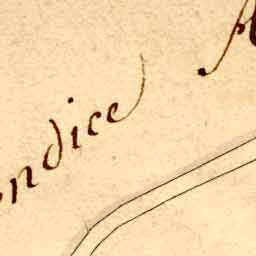 ndice
A